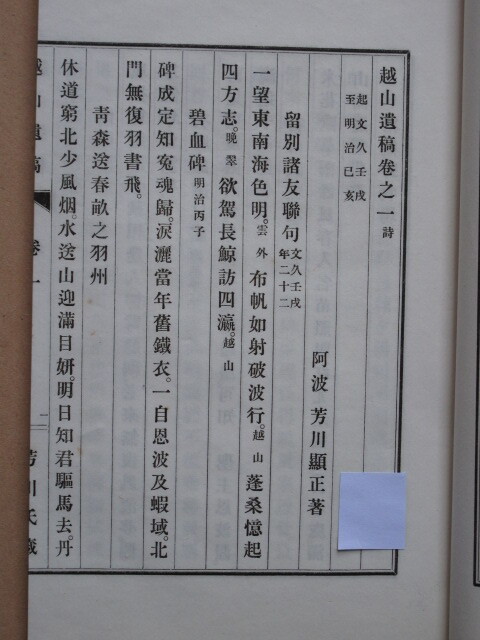 越山遺稿卷之一 詩
起文久壬戌
至明治己亥
阿波 芳川顯正著
留別諸友聯句 文久壬戌
年二十二
一望東南海色明。雲外 布帆如射破波行。越山 蓬桑憶起
四方志。晩翠 欲駕長鯨訪四瀛。越山
碧血碑 明治丙子
碑成定知冤魂歸。淚灑當年舊鐵衣。一自恩波及蝦域。北
門無復羽書飛。
靑森送春畝之羽州
休道窮北少風烟。水送山迎滿目妍。明日知君驅馬去。丹
越山遺稿 卷一 二 芳川氏藏